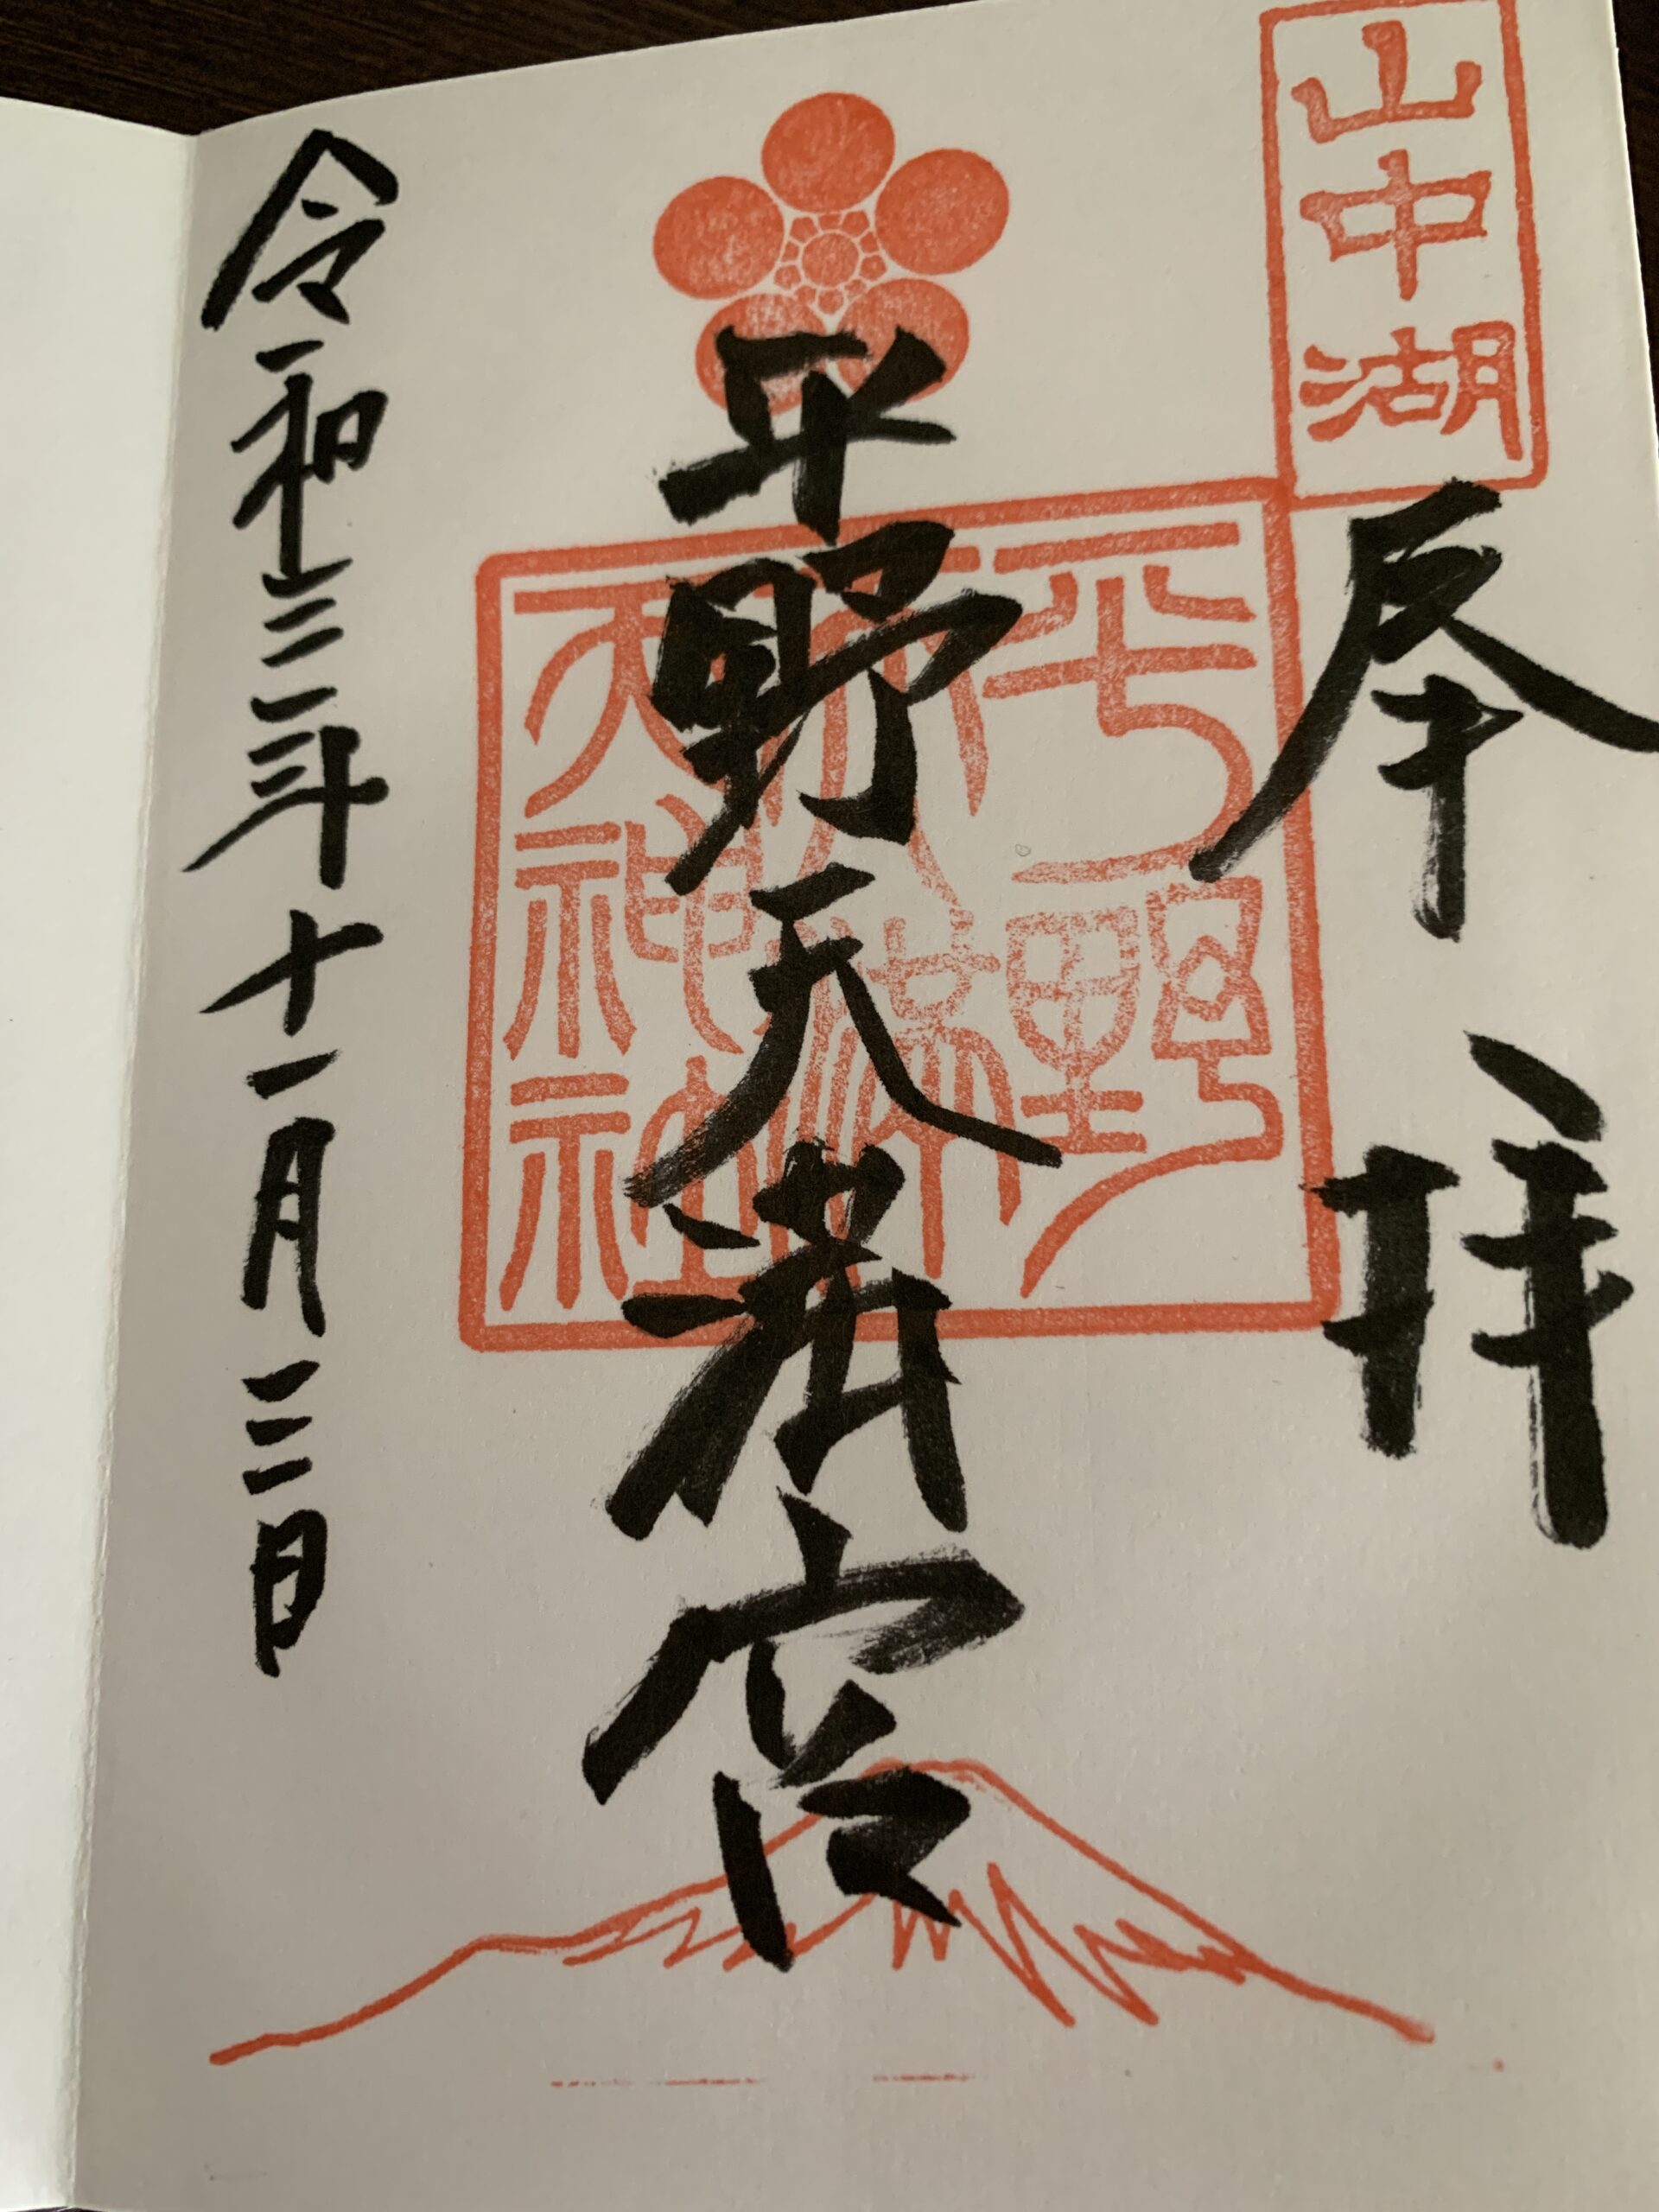 山中湖
奉拝
平野天満宮
平野
天神社
令和三年十一月三日